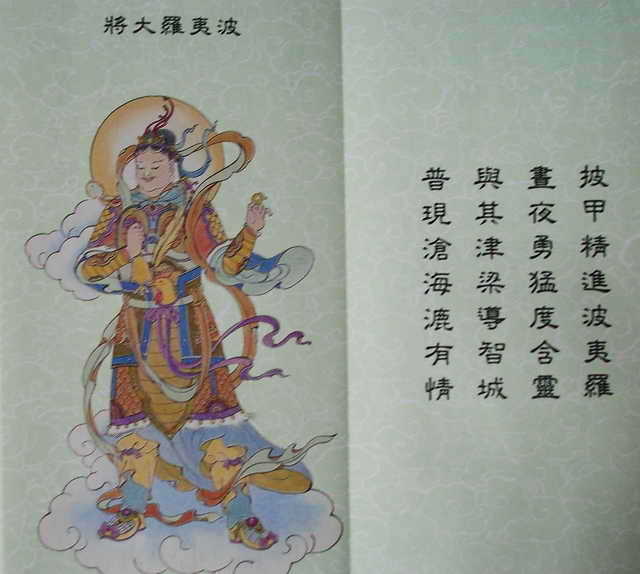 波夷羅大將
披甲精進波夷羅
晝夜勇猛度含靈
與其津梁導智城
普現滄海漉有情